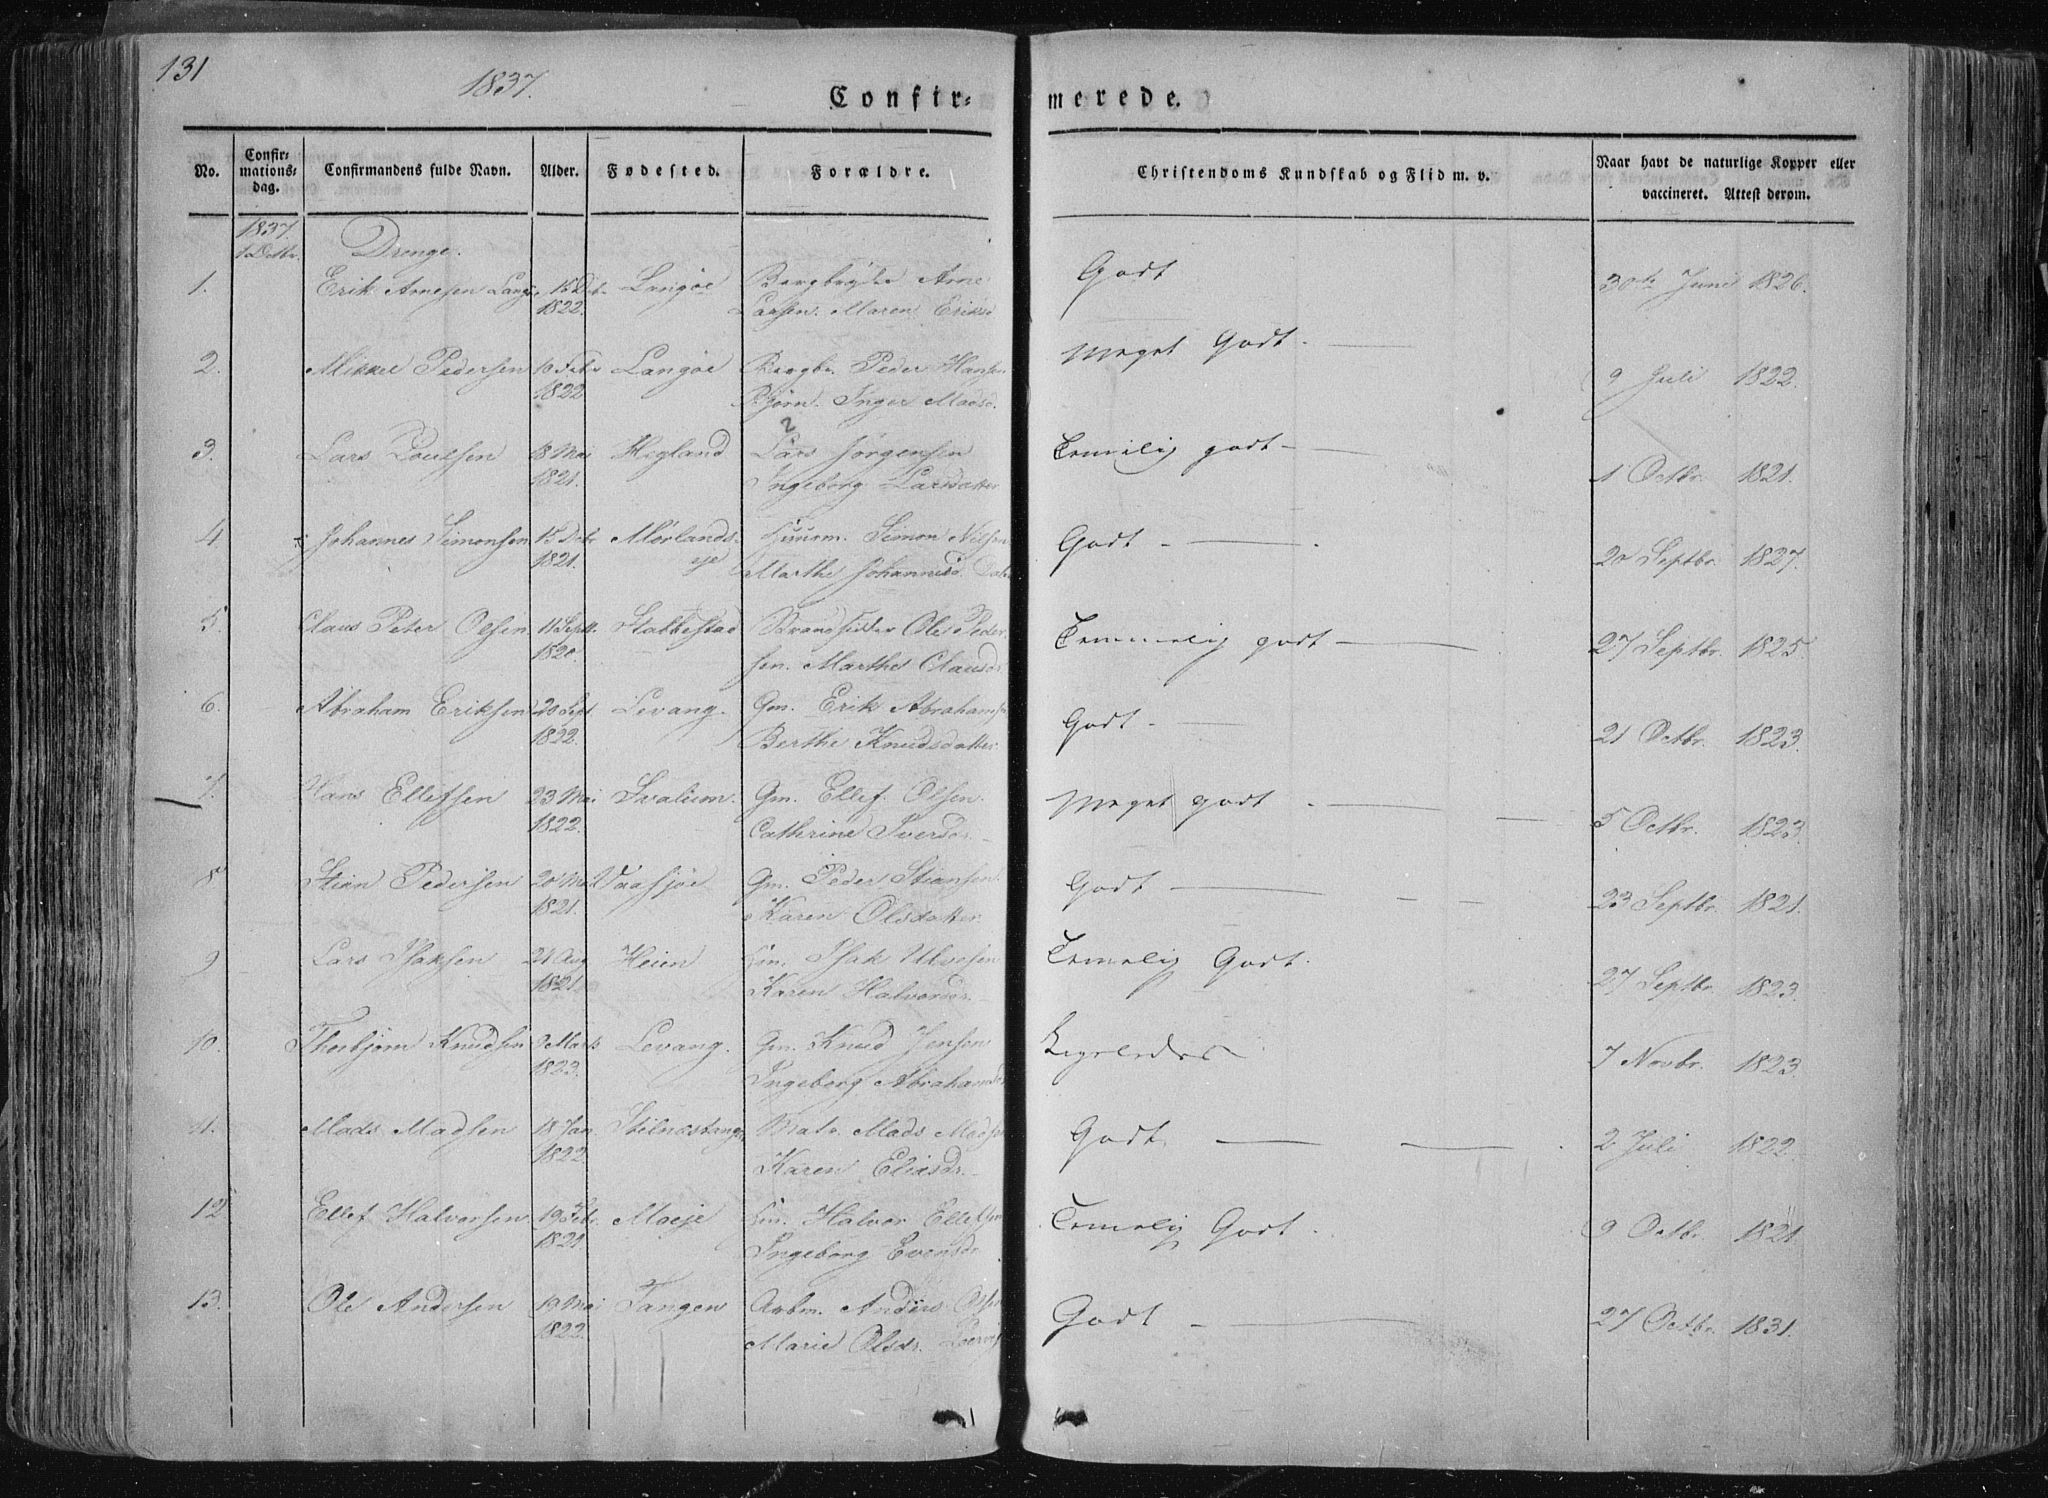 131
1837.
Confirmerede.
No.
Confirmationsdag.
Confirmandens fulde Navn.
Alder.
Fødested.
Forældre.
Christendoms Kundskab og Flid m. v.
Naar havt de naturlige Kopper eller
vaccineret. Attest derom.
1837
1 Octbr.
Drenge.
1. Erik Arnesen 15 Langøe Arne Godt 30te Juni 1826.
1822. Larsen. Maren Eriksd
2. Mikkel Pedersen 10 Febr Langøe Bergbr. Peder Hansen Meget Godt. 9 Juli 1822.
1822 Bjørn. Inger Madsd.
3. Lars Poulsen 18 Mai Hegland Lars Jørgensen Temelig godt 1 Octbr. 1821.
1821. Ingeborg Larsdatter
2
4. Johannes Simonsen 15 Mørlands Huusm. Simon Nilsen Godt 20 Septbr. 1827.
1821. eje Marthe Johannesd.
5. Claus Peter Olsen 11 Septr. Stabbestad Strandsidder Ole Peder Temmelig godt 27 Septbr. 1825.
1820. sen. Marthe Clausdr
6. Abraham Eriksen 20 Sept. Levang. Gm. Erik Abrahamsen Godt. 21 Octbr. 1823.
1822. Berthe Knudsdatter
7. Hans Ellefsen 23 Mai Svalum. Gm. Ellef Olsen. Meget godt. 5 Octbr. 1823.
1822. Cathrine Iversdr.
8 Stian Pedersen 20 Vaasjøe Gm. Peder Stiansen. Godt 23 Septbr. 1821.
1821. Karen Olsdatter.
9 Lars Isaksen 21 Aug Heien Isak Ulvesen Temelig Godt. 27 Septbr. 1823.
1821. Karen Halvorsdr.
10. Thorbjørn Knudsen 9 Marts Levang. Gm. Knud Jensen Ligeledes 7 Novbr. 1823.
1823. Ingeborg Abrahamsdr
11. Mads Madsen 18 Jan. Stilnæstangen Matr. Mads Madsen Godt. 2 Juli 1822.
1822. Karen Eliasdr.
12 Ellef Halvorsen 19 Febr. Moeje Halvor Ellefsen Temelig Godt. 9 Octbr. 1821
1821 Ingeborg Evensdr
13. Ole Andersen 19 Mai Tangen Arbm. Anders Olsen Godt 27 Octbr. 1831.
1822. Marie Olsdr.